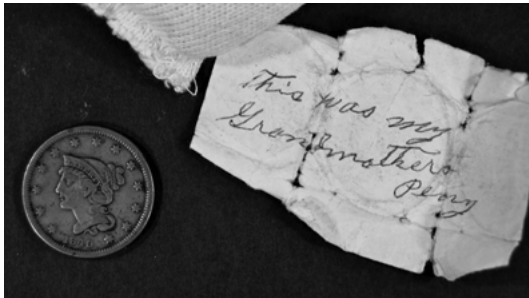 This was my
Grandmothers
Peny